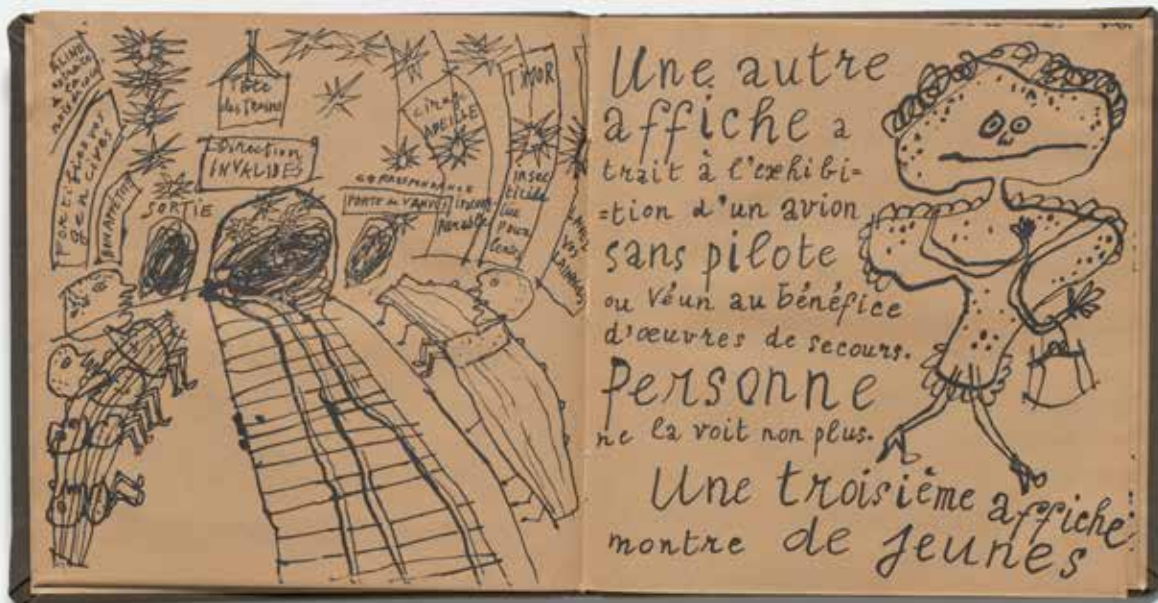 FORTIFIEZ VOS
gencives
BON APPETIT
SORTIE
Tête
des trains
Direction
INVALIDES
CORRESPONDANCE
PORTE de VANVES
cirag
ABEILLE
incom
parable
TIMOR
insec
ticide
tue
pour
Une autre
affiche a
trait à l'exhibi=
=tion d'un avion
sans pilote
ou Véun au bénéfice
d'œuvres de secours.
Personne
ne la voit non plus.
Une troisième affiche
montre de jeunes